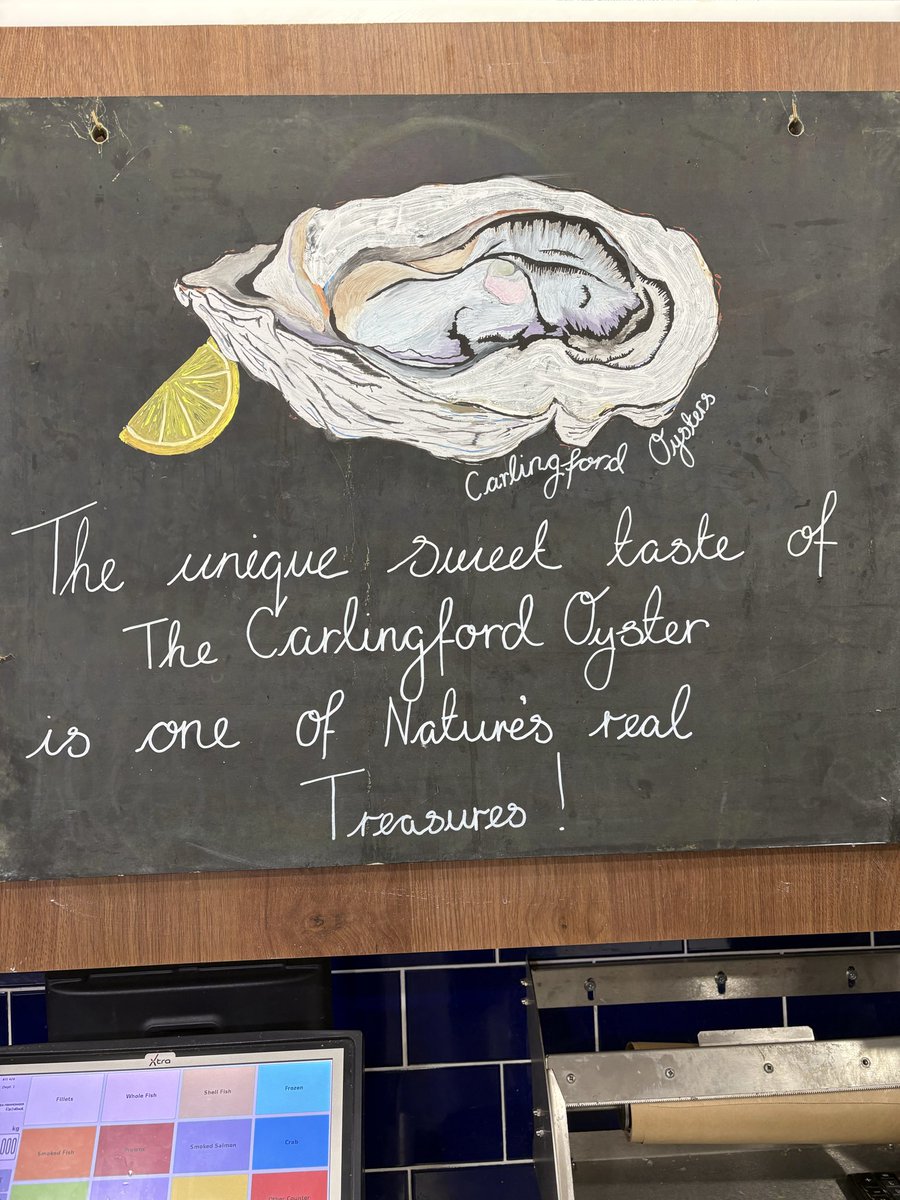 Carlingford Oysters
The unique sweet taste of
The Carlingford Oyster
is one of Nature's real
Treasures!
Xtra
Fillets
Whole Fish
Shell Fish
Frozen
kg
Smoked Fish
Smoked Salmon
Crab
Other Counter